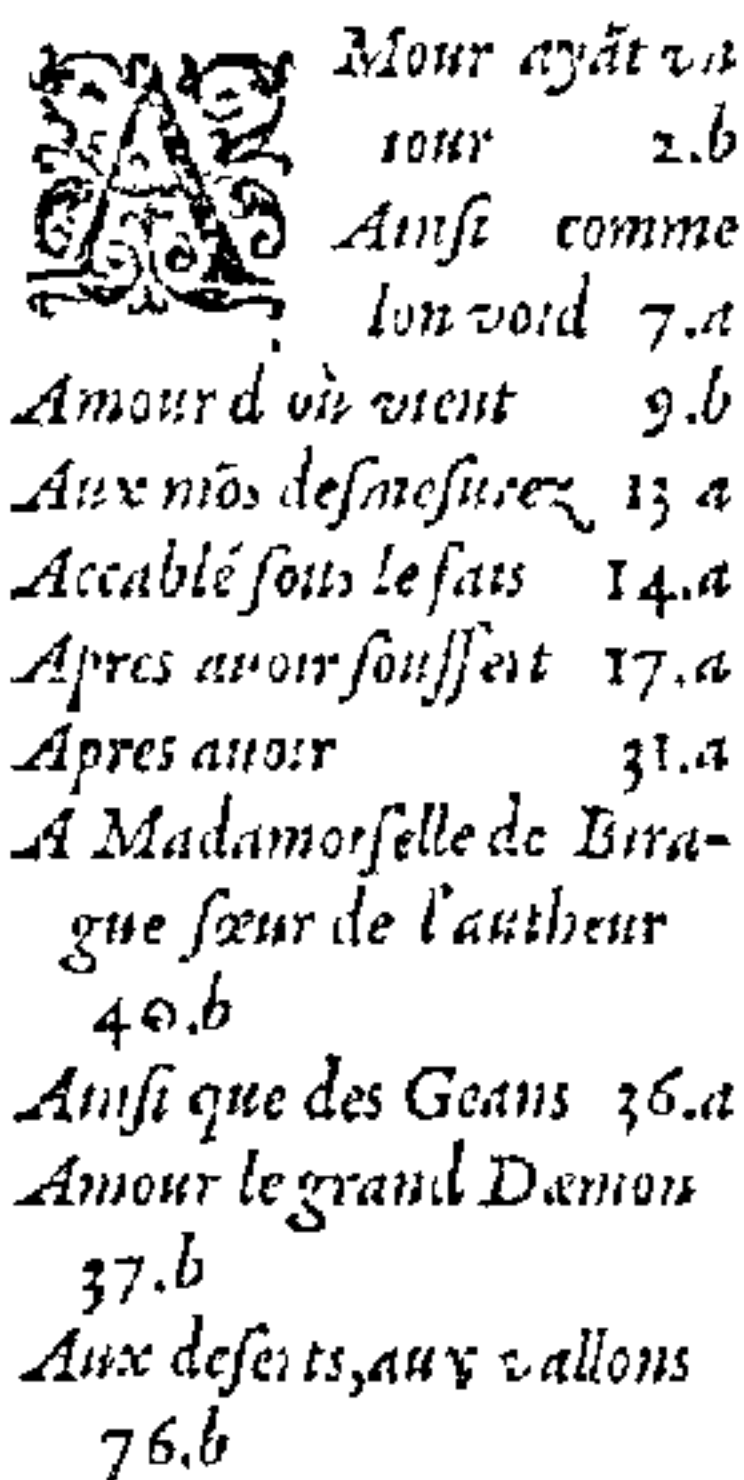 AMour ayãt va
iour 2.b
Ainſi comme
lon void 7.a
Amour d où vient 9.b
Aux mõs deſmeſurez 13 a
Accablé ſous le fais 14.a
Apres auoir ſouffert 17.a
Apres auoir 31.a
A Madamoiſelle de Bira-
gue ſœur de l'autheur
40.b
Ainſi que des Geans 36.a
Amour le grand Dæmon
37.b
Aux deſerts, aux vallons
76.b